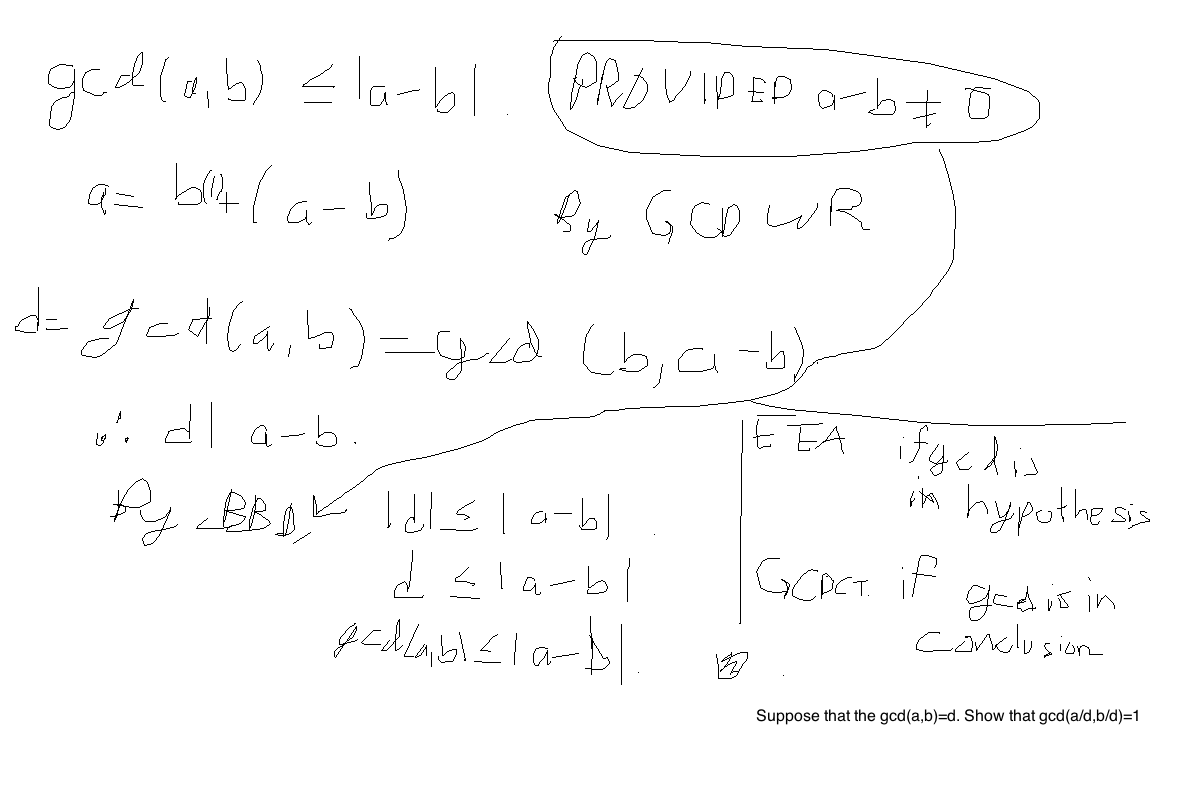 gcd(a,b) ≤ |a-b|. PROVIDED a-b ≠ 0
a = b(1) + (a-b) By GCD WR
d = gcd(a,b) = gcd (b, a-b).
∴ d | a-b.
By BBD, |d| ≤ |a-b|.
d ≤ |a-b|
gcd(a,b) ≤ |a-b|.
EEA if gcd is
in hypothesis
GCDCT. if gcd is in
conclusion
Suppose that the gcd(a,b)=d. Show that gcd(a/d,b/d)=1